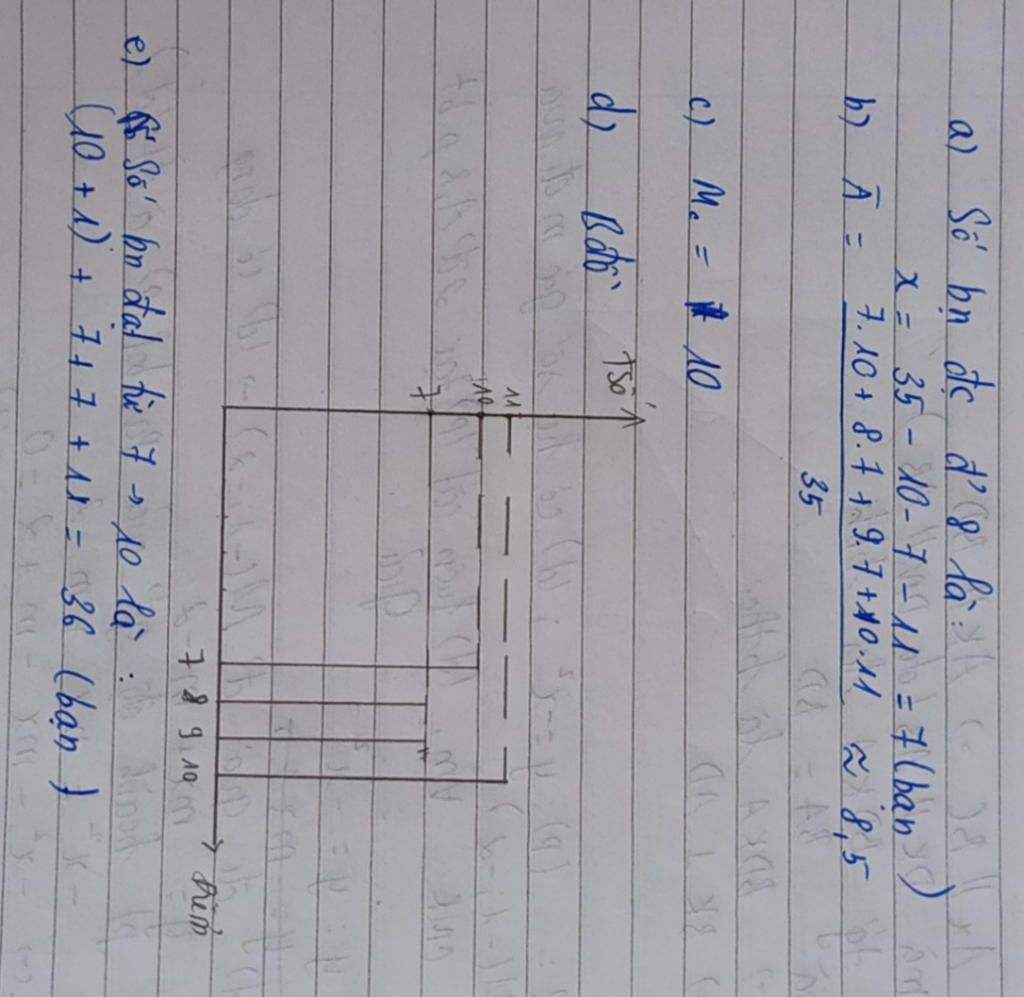 a) Số bn đc đ' 8 là:
x = 35 - 10 - 7 - 11 = 7 (bạn)
b) A̅ = 7.10 + 8.7 + 9.7 + 10.11 ≈ 8,5
35
c) M₀ = 10
d) Bđồ
TSố
11
10
7
7 8 9 10 Điểm
e) Số bn đạt từ 7 → 10 là:
(10 + 1) + 7 + 7 + 11 = 36 (bạn)